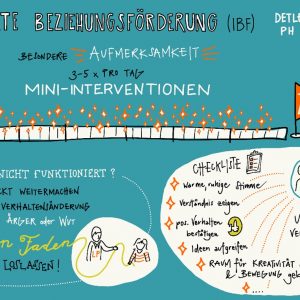 TE BEZIEHUNGSFÖRDERUNG (IBF)
DETLE
PH
BESONDERE AUFMERKSAMKEIT
3-5 x PRO TAG
MINI-INTERVENTIONEN
NICHT FUNKTIONIERT?
KT WEITERMACHEN
VERHALTENSÄNDERUNG
ÄRGER ODER WUT
n Faden
LOSLASSEN!
CHECKLISTE
warme, ruhige Stimme
Verständnis zeigen
pos. Verhalten
bestätigen
Ideen aufgreifen
RAUM FÜR KREATIVITÄT
& BEWEGUNG geb
....
U
VE